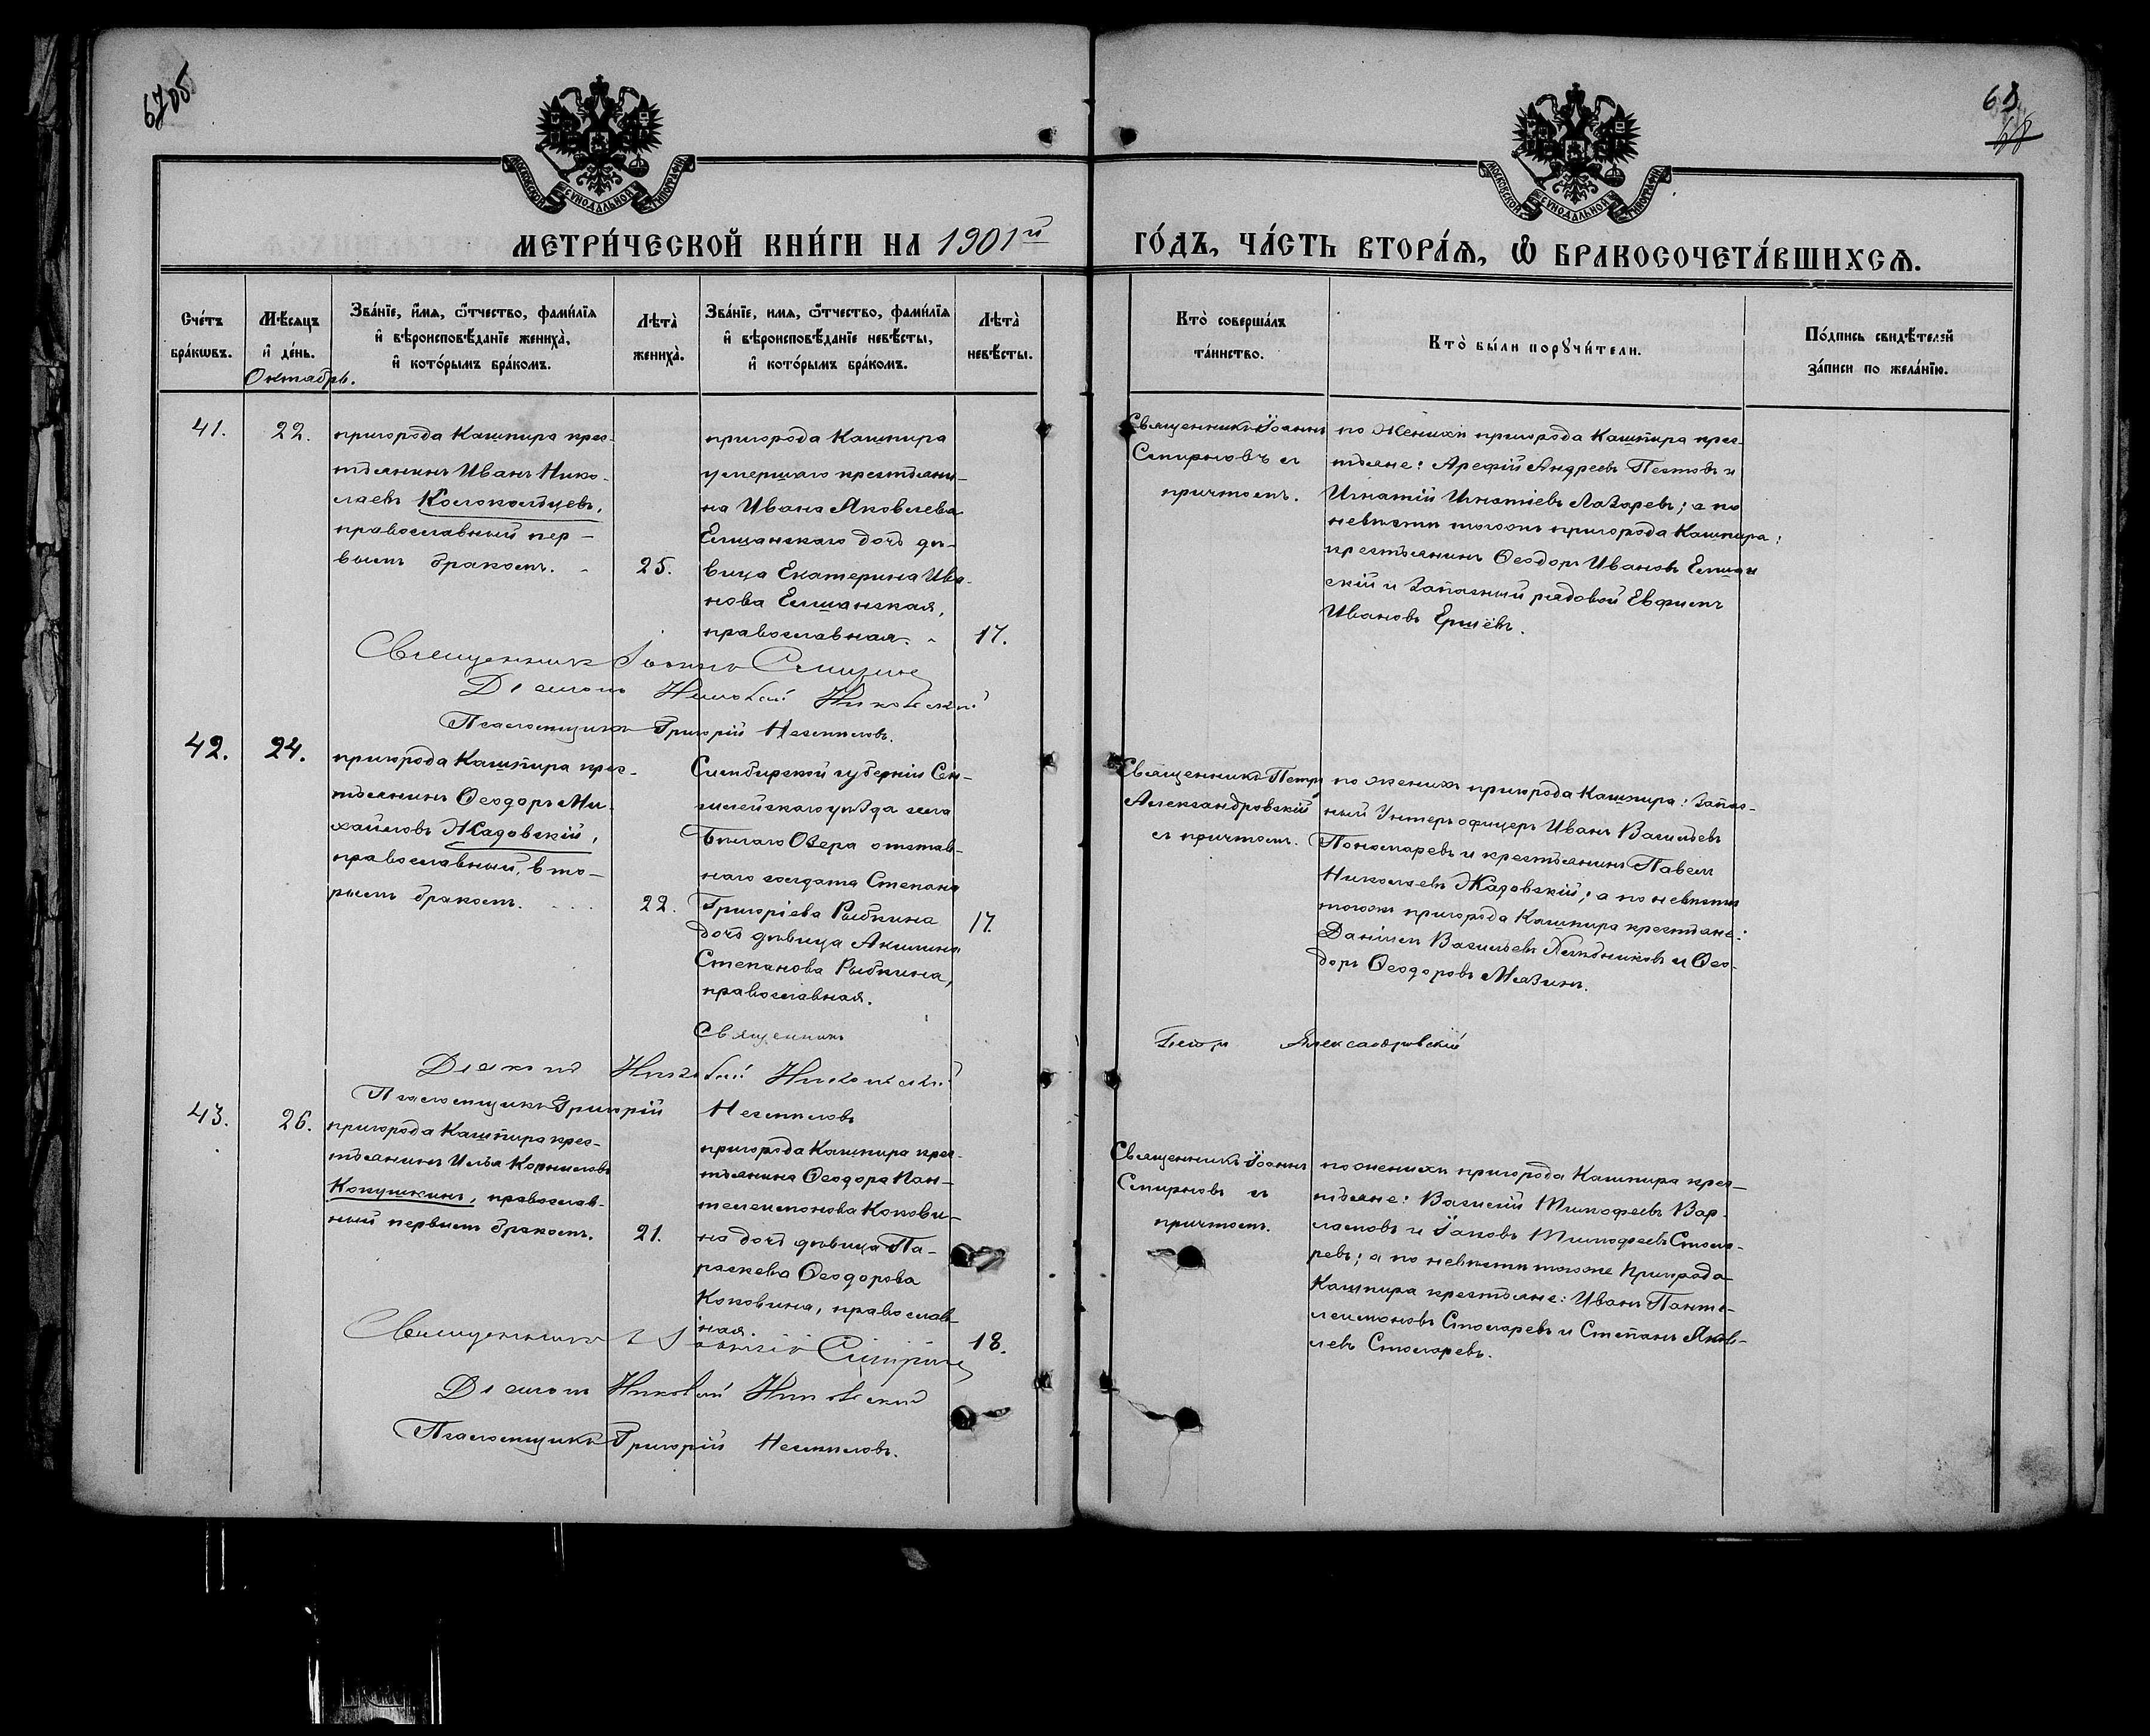 67об
69
68
МОСКОВСКОЙ СѴНОДАЛЬНОЙ ТИПОГРАФІИ
МОСКОВСКОЙ СѴНОДАЛЬНОЙ ТИПОГРАФІИ
МЕТРИ́ЧЕСКОЙ КНИ́ГИ НА 1901й
ГО́ДЪ, ЧА́СТЬ ВТОРА́Ѧ, Ѽ БРАКОСОЧЕТА́ВШИХСѦ.
Сче́тъ бра́кѡвъ.
Мѣ́сѧцъ и҆ де́нь.
Октябрь.
Зва́нїе, и҆́мѧ, ѻ҆́тчество, фами́лїѧ
и҆ вѣроисповѣ́данїе женихà,
и҆ кото́рымъ бра́комъ.
Лѣтà
женихà.
Зва́нїе, имѧ, ѻ҆́тчество, фами́лїѧ
и҆ вѣроисповѣ́данїе невѣ́сты,
и҆ кото́рымъ бра́комъ.
Лѣтà
невѣ́сты.
Кто̀ соверша́лъ
та́инство.
Кто̀ бы́ли порꙋчи́тели.
По́дпись свидѣ́телей
за́писи по жела́нїю.
41.
22.
пригорода Кашпира крес-
тьянинъ Иванъ Нико-
лаевъ Колокольцевъ,
православный пер-
вымъ бракомъ.
25.
пригорода Кашпира
умершаго крестьяни-
на Ивана Яковлева
Елшанскаго дочь дѣ-
вица Екатерина Ива-
нова Елшанская,
православная.
17.
Священникъ Іоаннъ
Смирновъ съ
причтомъ.
по женихѣ пригорода Кашпира крес-
тьяне: Арефій Андреевъ Пестовъ и
Игнатій Игнатіевъ Лазаревъ; а по
невѣстѣ тогожъ пригорода Кашпира:
крестьянинъ Ѳеодоръ Ивановъ Елшан
скій и запасный рядовой Евфимъ
Ивановъ Ершёвъ.
Священникъ Іоаннъ Смирнов
Діаконъ Николай Никольский
Псаломщикъ Григорій
42.
24.
пригорода Кашпира крес-
тьянинъ Ѳеодоръ Ми-
хайловъ Жадовскій,
православный, вто-
рымъ бракомъ.
22.
Симбирской губерніи Сен-
гилейскаго уѣзда села
Бѣлаго Озера отстав-
наго солдата Степана
Григоріева Рыбкина
дочь дѣвица Акилина
Степанова Рыбкина,
православная.
17.
Священникъ Петръ
Александровскій
съ причтомъ.
по женихѣ пригорода Кашпира: запас-
ный Унтеръ офицеръ Иванъ Васильевъ
Пономаревъ и крестьянинъ Павелъ
Николаевъ Жадовскій; а по невѣстѣ
тогожъ пригорода Кашпира крестьяне:
Даніилъ Васильевъ и Ѳео-
доръ Ѳеодоровъ Мазинъ.
Священникъ Петръ Александровскій
Діаконъ Николай Никольский
Псаломщикъ Григорій
43.
26.
пригорода Кашпира крес-
тьянинъ Илья Корниловъ
Копушкинъ, православ-
ный первымъ бракомъ.
21.
пригорода Кашпира крес-
тьянина Ѳеодора Пан-
телеимонова Кокови-
на дочь дѣвица Па-
раскева Ѳеодорова
Коковина, православ-
ная.
18.
Священникъ Іоаннъ
Смирновъ съ
причтомъ.
по женихѣ пригорода Кашпира крес-
тьяне: Василій Тимофеевъ Вар-
ламовъ и Іаковъ Тимофеевъ Столя-
ревъ; а по невѣстѣ тогоже пригорода
Кашпира крестьяне: Иванъ Панте-
леимоновъ Столяревъ и Степанъ Яков-
левъ Столяревъ.
Священникъ Іоаннъ Смирнов
Діаконъ Николай Никольский
Псаломщикъ Григорій